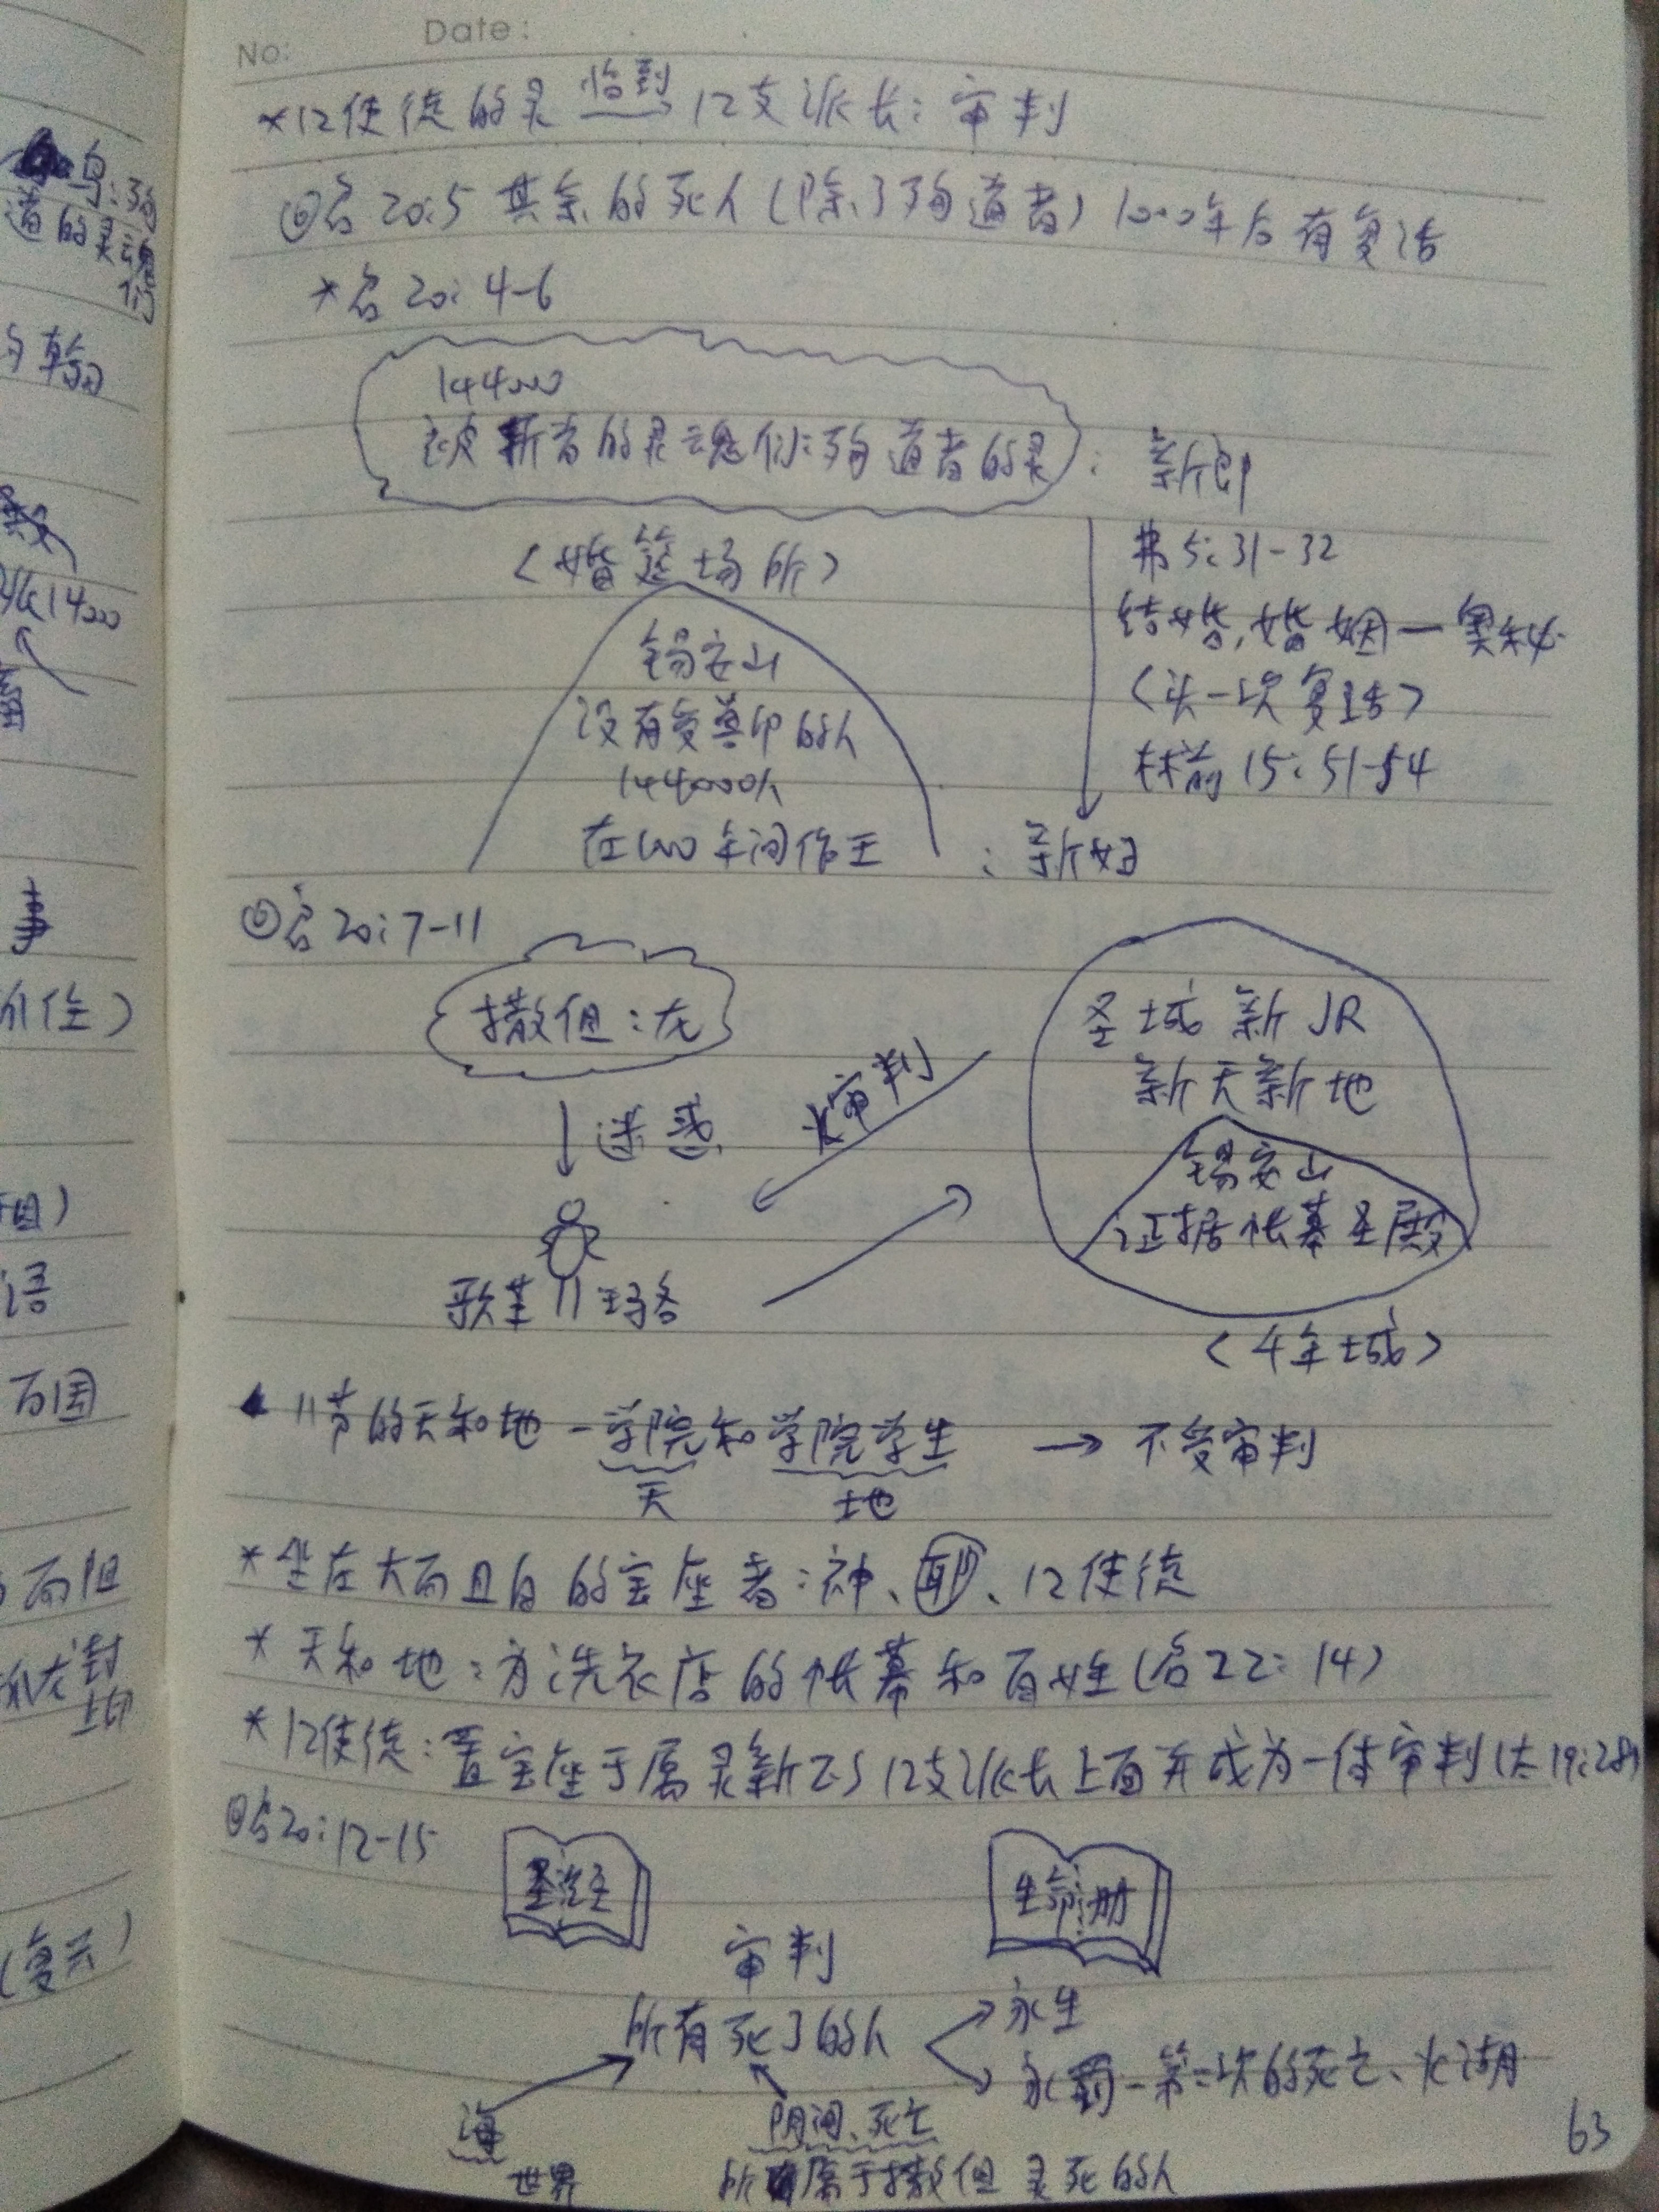 No:
Date:
*12使徒的灵 临到 12支派长：审判
◎启20:5 其余的死人（除了殉道者）1000年后有复活
*启20:4-6
144000
被斩者的灵魂们：殉道者的灵：新郎
〈婚筵场所〉
弗5:31-32
结婚,婚姻—奥秘
〈头一次复活〉
林前15:51-54
锡安山
没有受兽印的人
144000人
在1000年间作王：新妇
◎启20:7-11
撒但：龙
圣城 新JR
新天新地
火审判
↓迷惑
锡安山
证据帐幕圣殿
歌革 玛各
〈千年城〉
11节的天和地—学院和学院学生 → 不受审判
天 地
*坐在大而且白的宝座者：神、耶、12使徒
*天和地：为洗衣店的帐幕和百姓（启22:14）
*12使徒：置宝座于属灵新以12支派长上面并成为一体审判（太19:28）
◎启20:12-15
圣经
生命册
审判
所有死了的人
永生
永罚—第二次的死亡、火湖
海
世界
阴间、死亡
所有属于撒但灵死的人
63
鸟：殉
道的灵魂
们
约翰
14000
事
住）
语
万国
封
上印